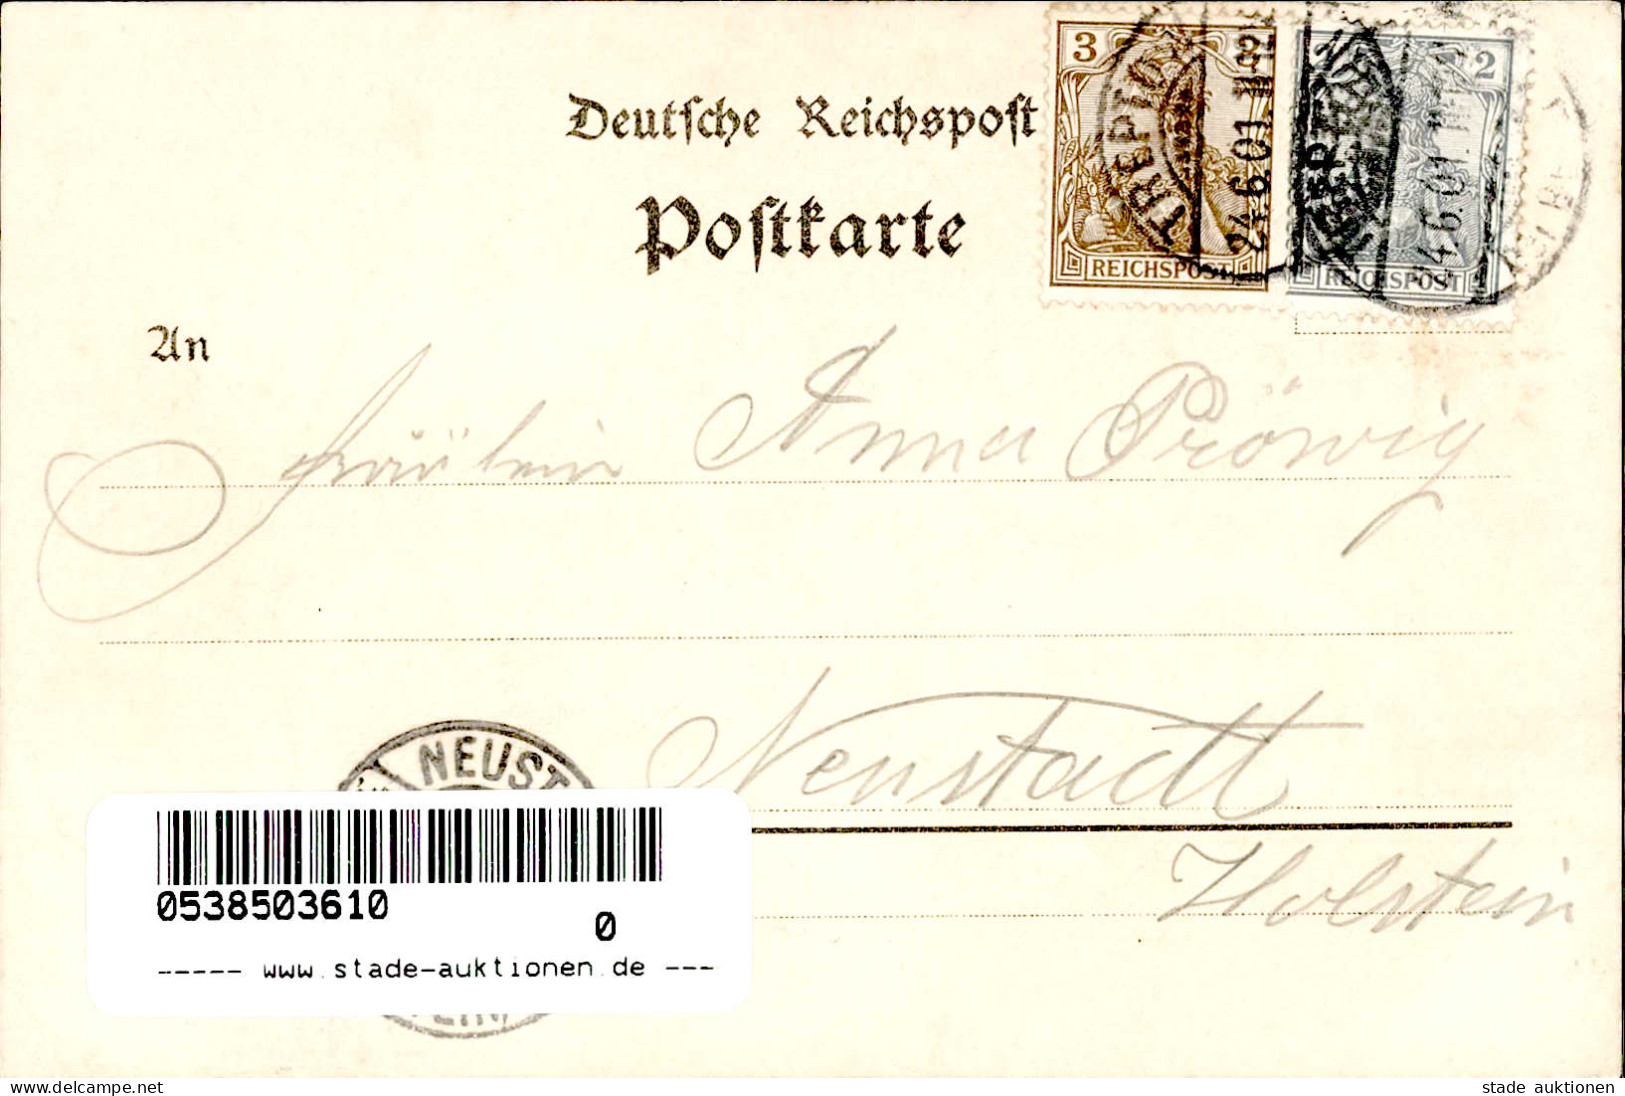 Deutsche Reichspost
Postkarte
3 3
REICHSPOST
2
REICHSPOST
TREPTO
24.6.01
4.6.01
An
Fräulein Anna Pröwig
Neustadt
Holstein
NEUST
0538503610
0
----- www.stade-auktionen.de ---
www.delcampe.net
stade auktionen